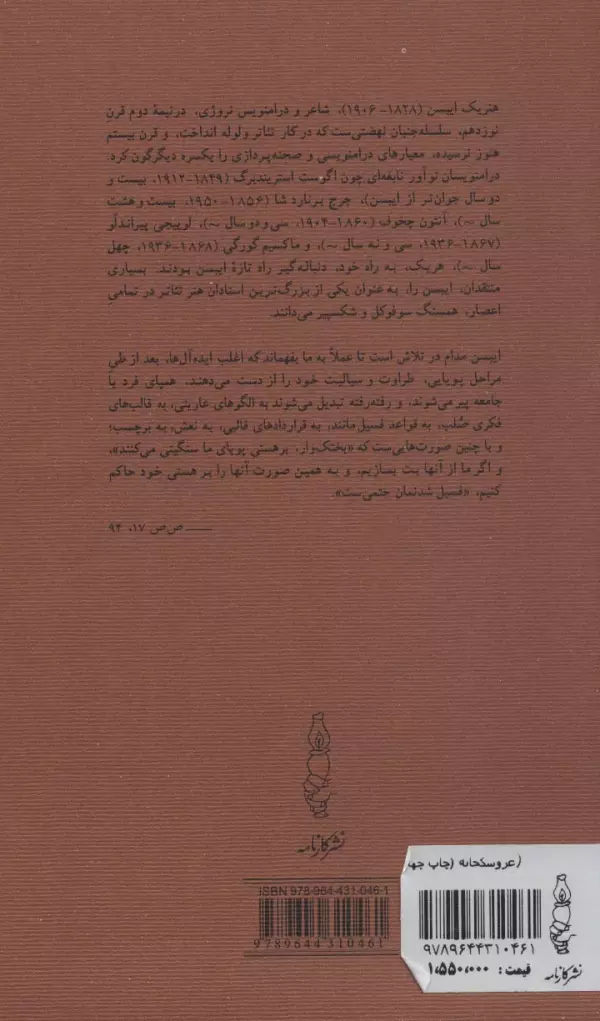 هنریک ایبسن (۱۸۲۸-۱۹۰۶)، شاعر و درامنویس نروژی، در نیمهٔ دوم قرن
نوزدهم، سلسله‌جنبان نهضتی‌ست که در کار تئاتر ولوله انداخت، و قرن بیستم
هنوز نرسیده، معیارهای درامنویسی و صحنه‌پردازی را یکسره دیگرگون کرد.
درامنویسان نوآور نابغه‌ای چون اگوست استریندبرگ (۱۸۴۹-۱۹۱۲، بیست و
دو سال جوان‌تر از ایبسن)، جرج برنارد شا (۱۸۵۶-۱۹۵۰، بیست و هشت
سال ~)، آنتون چخوف (۱۸۶۰-۱۹۰۴، سی و دو سال ~)، لوییجی پیراندلو
(۱۸۶۷-۱۹۳۶، سی و نه سال ~)، و ماکسیم گورگی (۱۸۶۸-۱۹۳۶، چهل
سال ~)، هریک، به راه خود، دنباله‌گیر راه تازهٔ ایبسن بودند. بسیاری
منتقدان، ایبسن را، به عنوان یکی از بزرگ‌ترین استادان هنر تئاتر در تمامیِ
اعصار، همسنگ سوفوکل و شکسپیر می‌دانند.
ایبسن مدام در تلاش است تا عملاً به ما بفهماند که اغلب ایده‌آل‌ها، بعد از طیِ
مراحل پویایی، طراوت و سیالیت خود را از دست می‌دهند. همپای فرد یا
جامعه پیر می‌شوند، و رفته‌رفته تبدیل می‌شوند به الگوهای عاریتی، به قالب‌های
فکری صُلب، به قواعد فسیل‌مانند، به قراردادهای قالبی، به نعش، به برچسب؛
و یا چنین صورت‌هایی‌ست که «بختک‌وار، بر هستی پویای ما سنگینی می‌کنند»،
و اگر ما از آنها بت بسازیم، و به همین صورت آنها را بر هستی خود حاکم
کنیم، «فسیل شدنمان حتمی‌ست».
ــــــ ص‌ص ۱۷، ۹۴
نشر کارنامه
ISBN 978-964-431-046-1
9789644310461
عروسکخانه (چاپ چها
۹۷۸۹۶۴۴۳۱۰۴۶۱
قیمت : ۱,۵۵۰,۰۰۰
نشر کارنامه